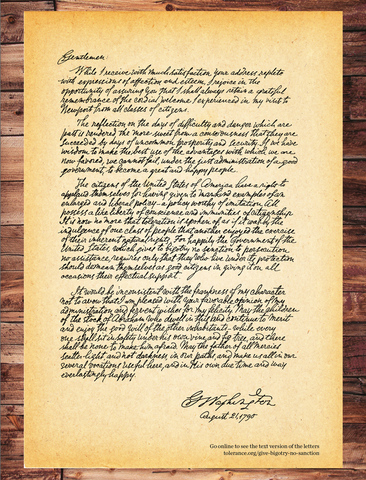 Gentlemen:
While I receive with much satisfaction, your address replete
with expressions of affection and esteem, I rejoice in the
opportunity of assuring you that I shall always retain a grateful
remembrance of the cordial welcome I experienced in my visit to
Newport from all classes of citizens.
The reflection on the days of difficulty and danger which are
past is rendered the more sweet from a consciousness that they are
succeeded by days of uncommon prosperity and security. If we have
wisdom to make the best use of the advantages with which we are
now favored, we cannot fail, under the just administration of a good
government, to become a great and happy people.
The citizens of the United States of America have a right to
applaud themselves for having given to mankind examples of an
enlarged and liberal policy—a policy worthy of imitation. All
possess a like liberty of conscience and immunities of citizenship.
It is now no more that toleration is spoken of as if it were the
indulgence of one class of people that another enjoyed the exercise
of their inherent natural rights. For happily the Government of the
United States, which gives to bigotry no sanction to persecution,
no assistance, requires only that they who live under its protection
should demean themselves as good citizens in giving it on all
occasions their effectual support.
It would be inconsistent with the frankness of my character
not to avow that I am pleased with your favorable opinion of my
administration and fervent wishes for my felicity. May the children
of the stock of Abraham who dwell in this land continue to merit
and enjoy the good will of the other inhabitants—while every
one shall sit in safety under his own vine and fig tree, and there
shall be none to make him afraid. May the father of all mercies
scatter light and not darkness in our paths and make us all in our
several vocations useful here, and in His own due time and way
everlastingly happy.
G Washington
August 21, 1790
Go online to see the text version of the letters
tolerance.org/give-bigotry-no-sanction